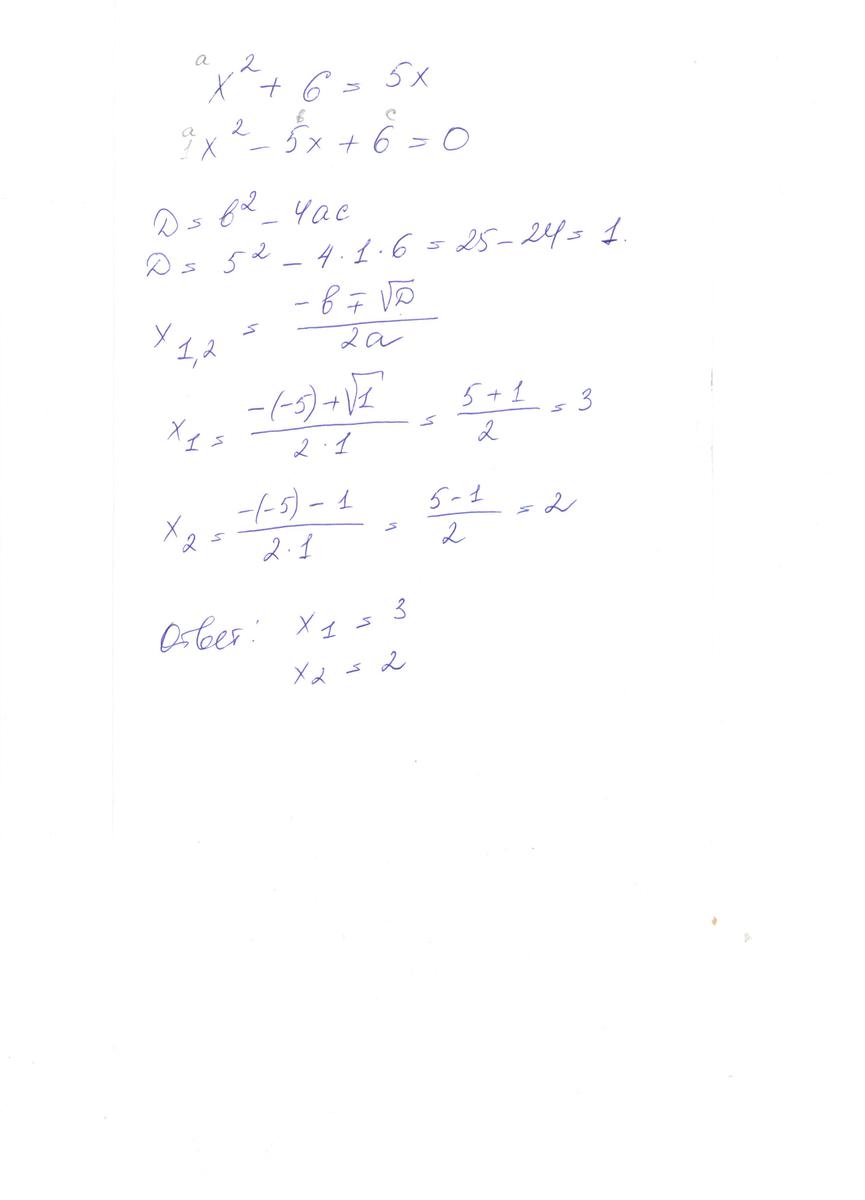 a
x² + 6 = 5x
a в c
1x² - 5x + 6 = 0
D = в² - 4ac
D = 5² - 4 · 1 · 6 = 25 - 24 = 1.
x1,2 = (-в ∓ √D) / 2a
x1 = (-(-5) + √1) / (2 · 1) = (5 + 1) / 2 = 3
x2 = (-(-5) - 1) / (2 · 1) = (5 - 1) / 2 = 2
Ответ: x1 = 3
x2 = 2